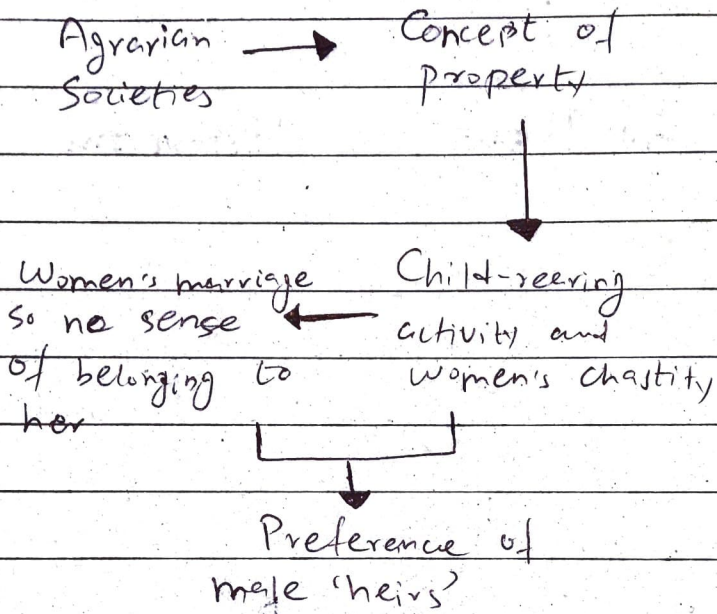 Agrarian
Societies
Concept of
property
Child-reering
activity and
women's chastity
Women's marriage
so no sense
of belonging to
her
Preference of
male 'heirs'